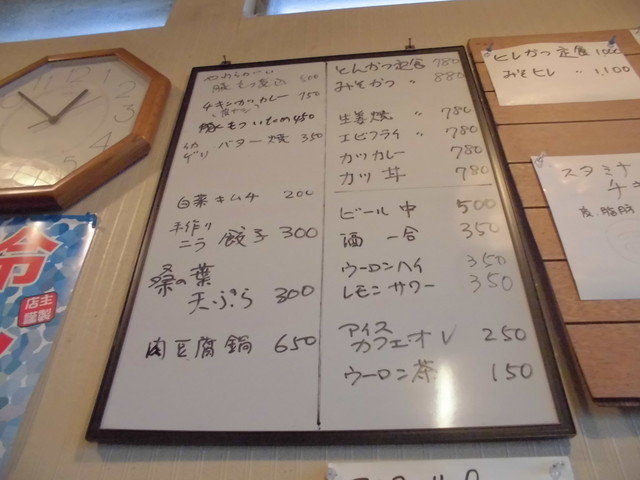 豚もつ煮込 500
チキンカツカレー 750
豚もついため 450
バター焼 350
白菜キムチ 200
手作り
ニラ 餃子 300
桑の葉
天ぷら 300
肉豆腐鍋 650
とんかつ定食 780
みそかつ 〃 880
生姜焼 〃 780
エビフライ 〃 780
カツカレー 780
カツ丼 780
ビール 中 500
酒 一合 350
ウーロンハイ 350
レモンサワー 350
アイス
カフェオレ 250
ウーロン茶 150
ヒレかつ定食 1000
みそヒレ 〃 1,100
スタミナ
冷
店主
謹製